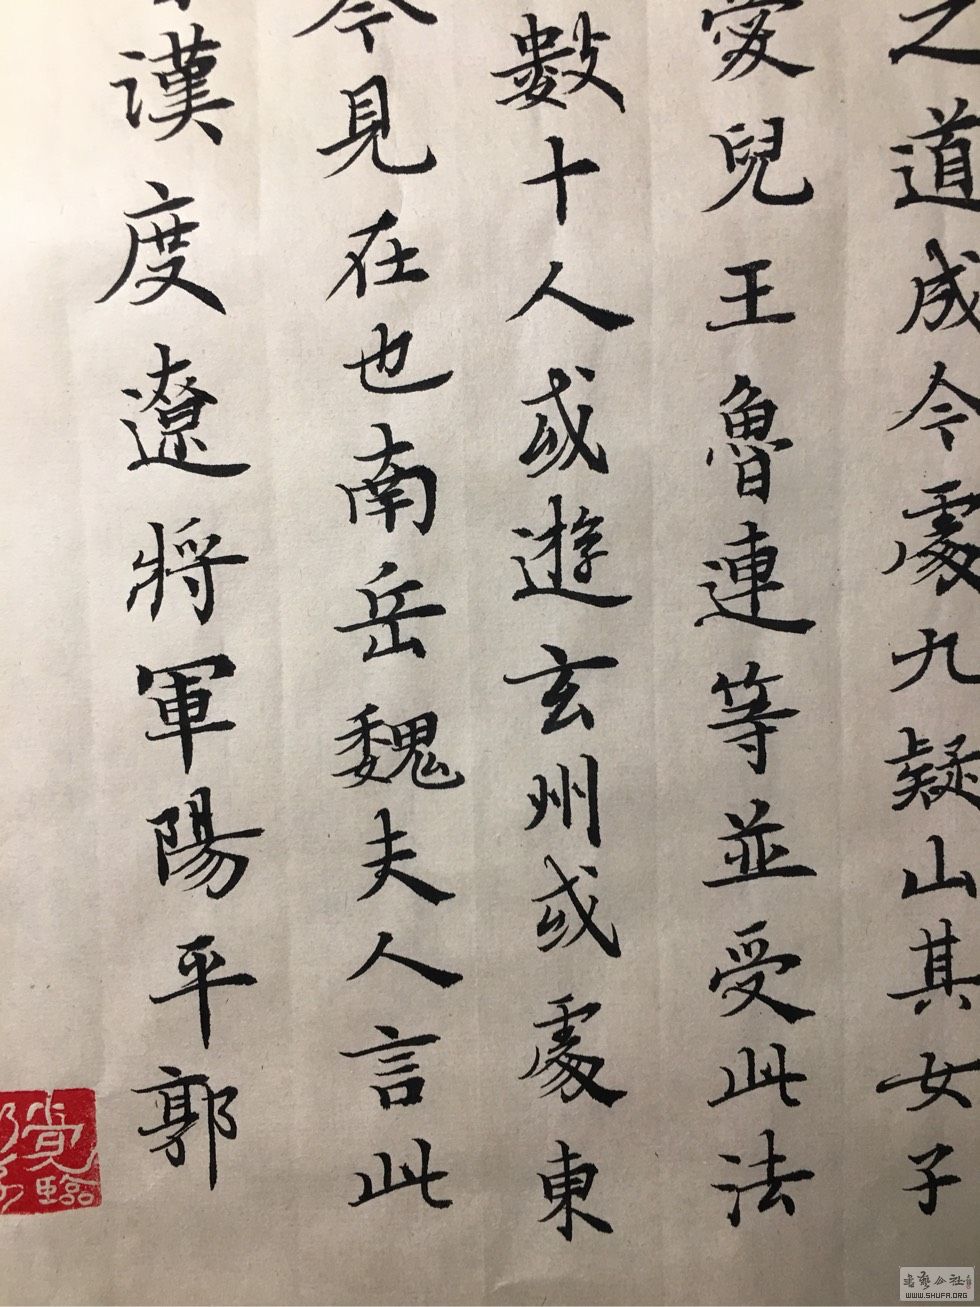 之道成今處九疑山其女子
愛兒王魯連等並受此法
數十人或遊玄州或處東
今見在也南岳魏夫人言此
漢度遼將軍陽平郭
臨
WWW.SHUFA.ORG